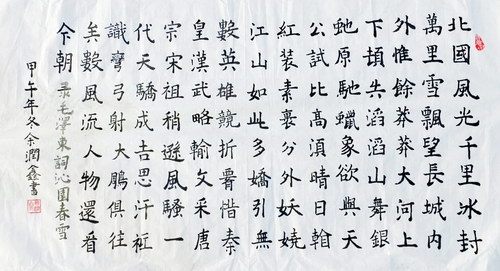 北國風光千里冰封
萬里雪飄望長城内
外惟餘莽莽大河上
下頓失滔滔山舞銀
虵原馳蠟象欲與天
公試比高湏晴日
紅装素裹分外妖嬈
江山如此多嬌引無
數英雄競折惜秦
皇漢武略輸文采唐
宗宋祖稍遜風騷一
代天驕成吉思汗衹
識彎弓射大鵰俱往
矣數風流人物還看
今朝 录毛澤東詞沁園春雪
甲午年冬余潤鑫書